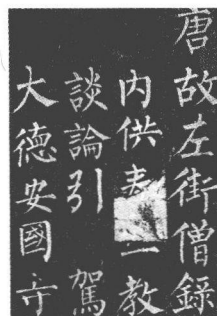 唐故左街僧錄
內供一教
談論引駕
大德安國寺